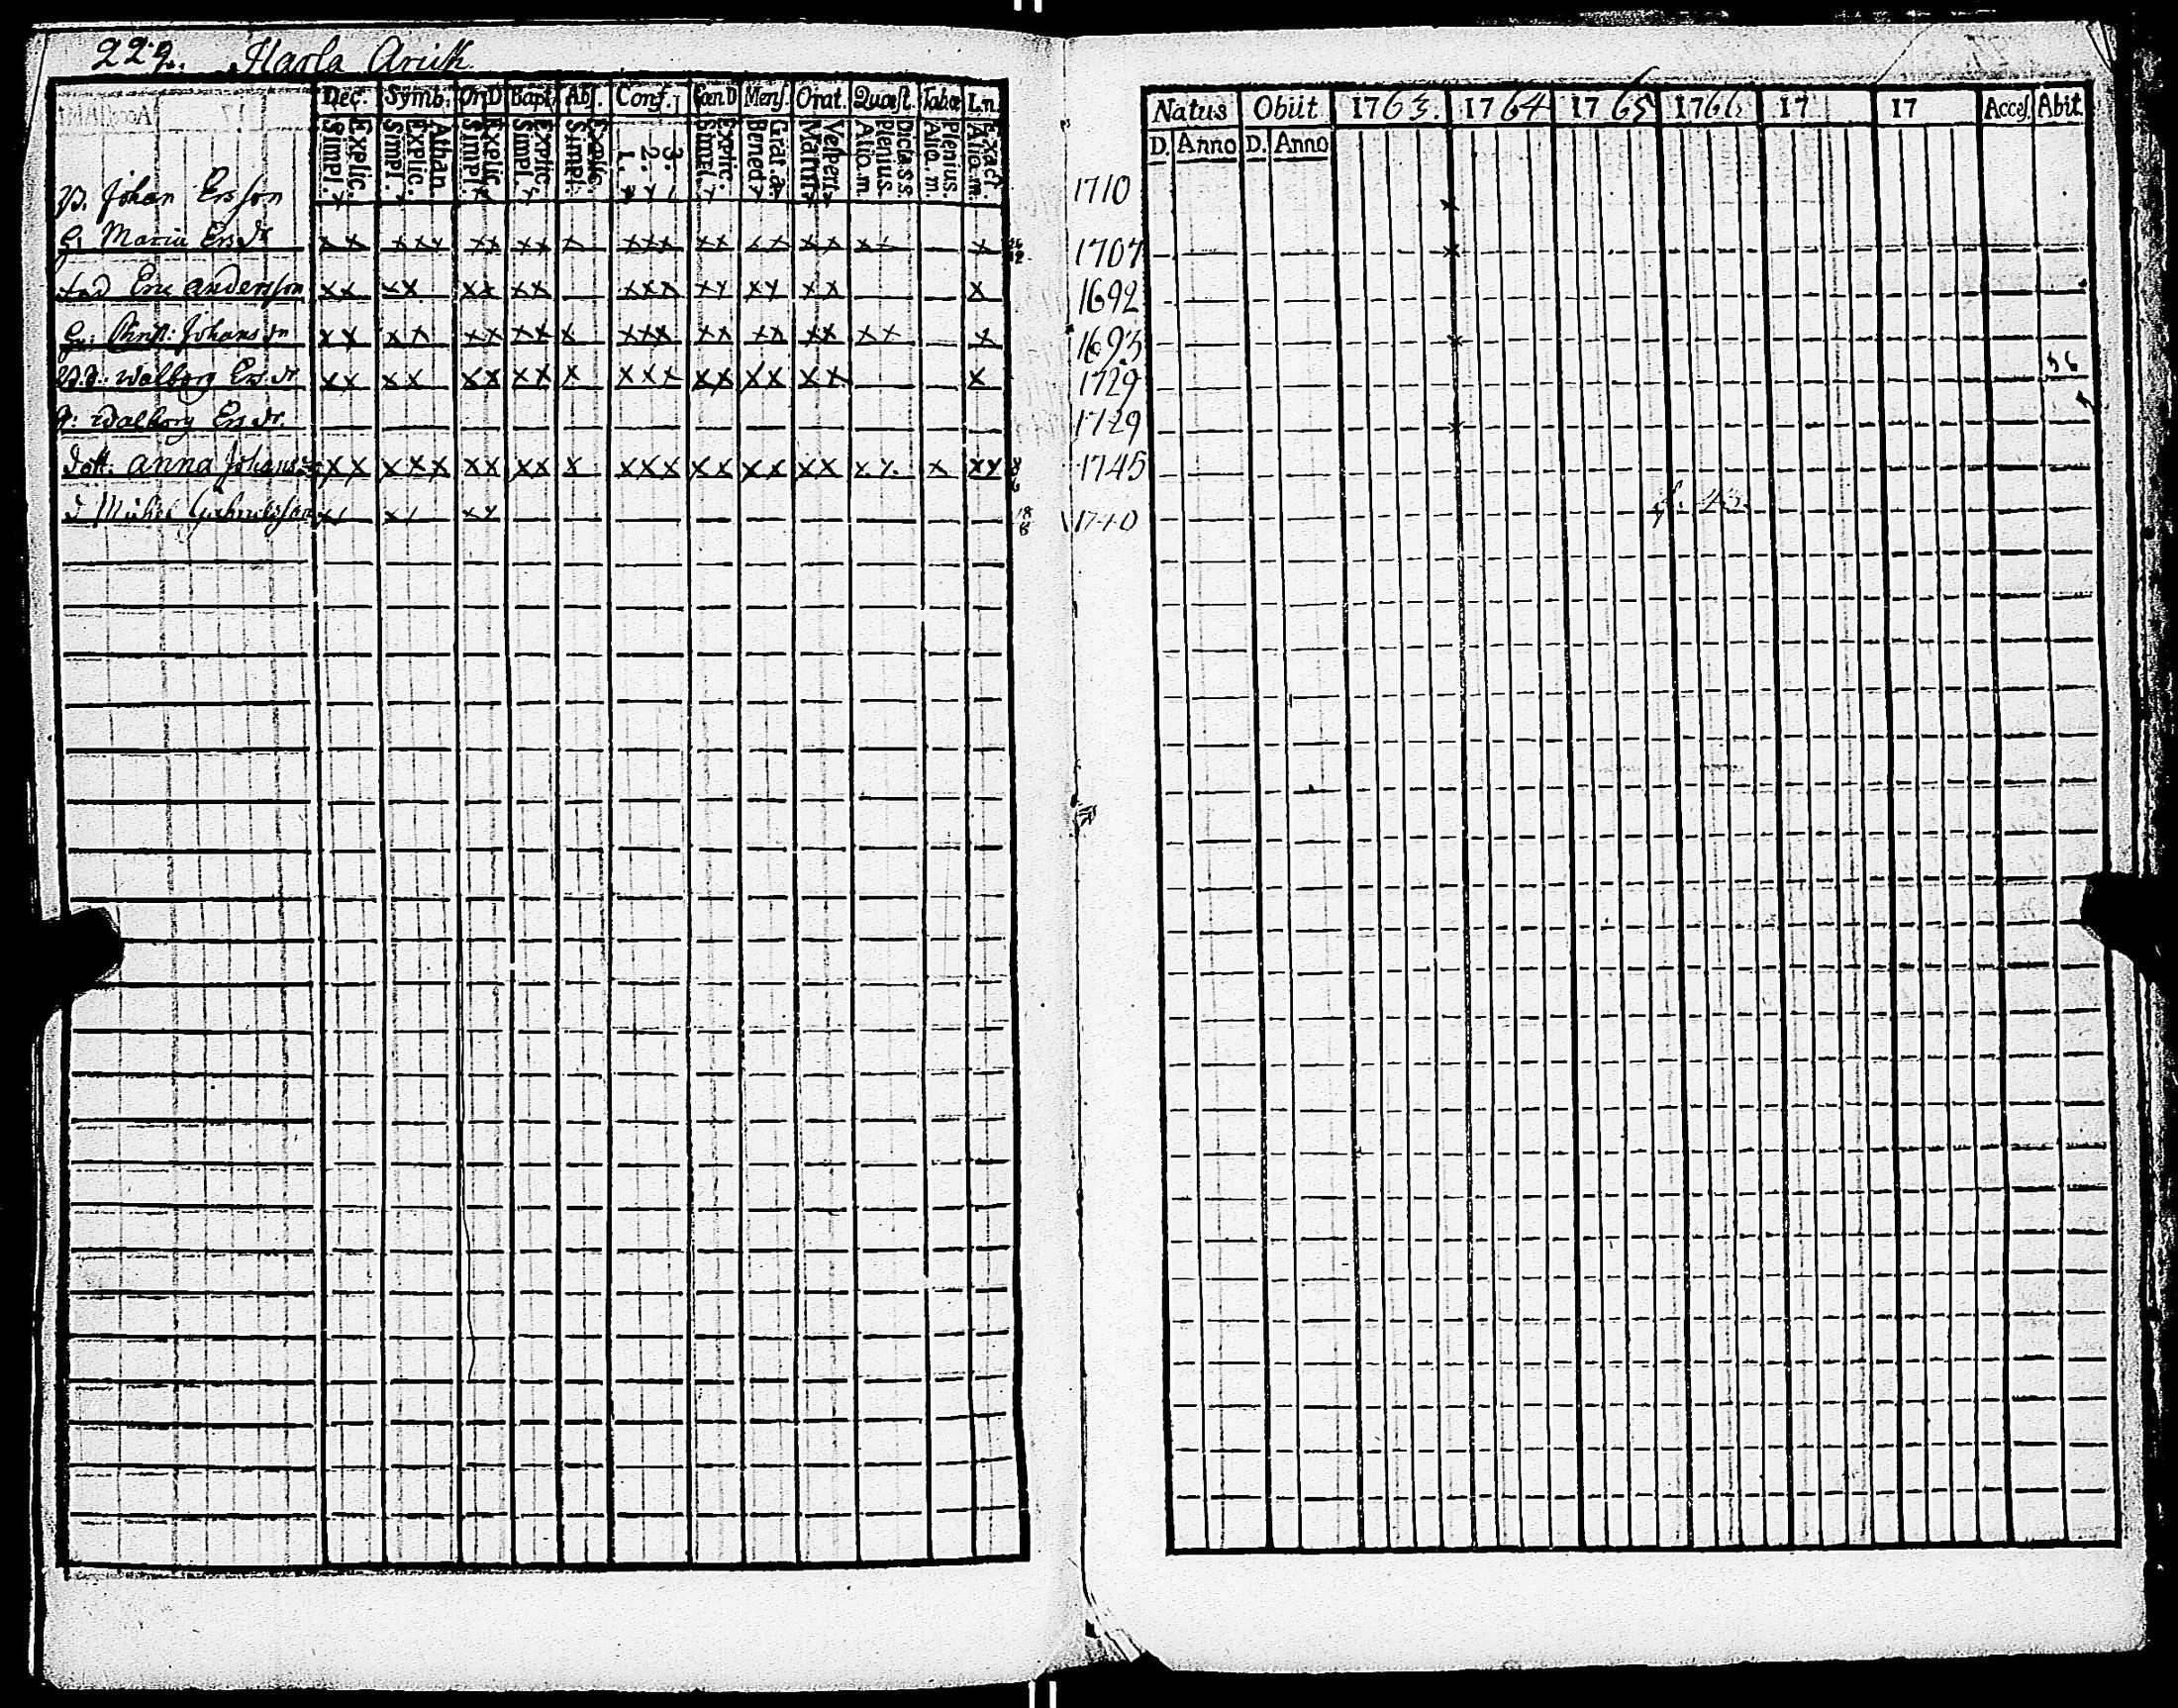 229. Harla
Dec. Symb. Or.D Bapt. Abs. Conf. CœnD Mens. Orat. Quæst. Tabœ L.n.
Explic. Simpl. Athan. Explic. Simpl. Explic. Simpl. Explic. Simpl. Explic. Simpl. 3. 2. 1. Explic. Simpl. Grat.a. Bened. Vespert. Matut. Dicta s.s. Plenius. Alio.m. Plenius. Alio.m. Exact. Alio.m.
Natus Obiit 1763. 1764 1765 1766 17 17 Acces. Abit.
D. Anno D. Anno
Johan Ersson x x x x x x x x x x x 1710 x
Maria Ersdr x x x x x x x x x x x x x x x x x x x x x 1707 x
Eric Andersson x x x x x x x x x x x x x x x x x x 1692
Johansdr x x x x x x x x x x x x x x x x x x x x x 1693 x
Walborg Ersdr x x x x x x x x x x x x x x x x x x x 1729 36
Walborg Ersdr. 1729 x
dott. Anna Johansdr x x x x x x x x x x x x x x x x x x x x x x x x 1745
Michel x x x x x x 18 6 1740